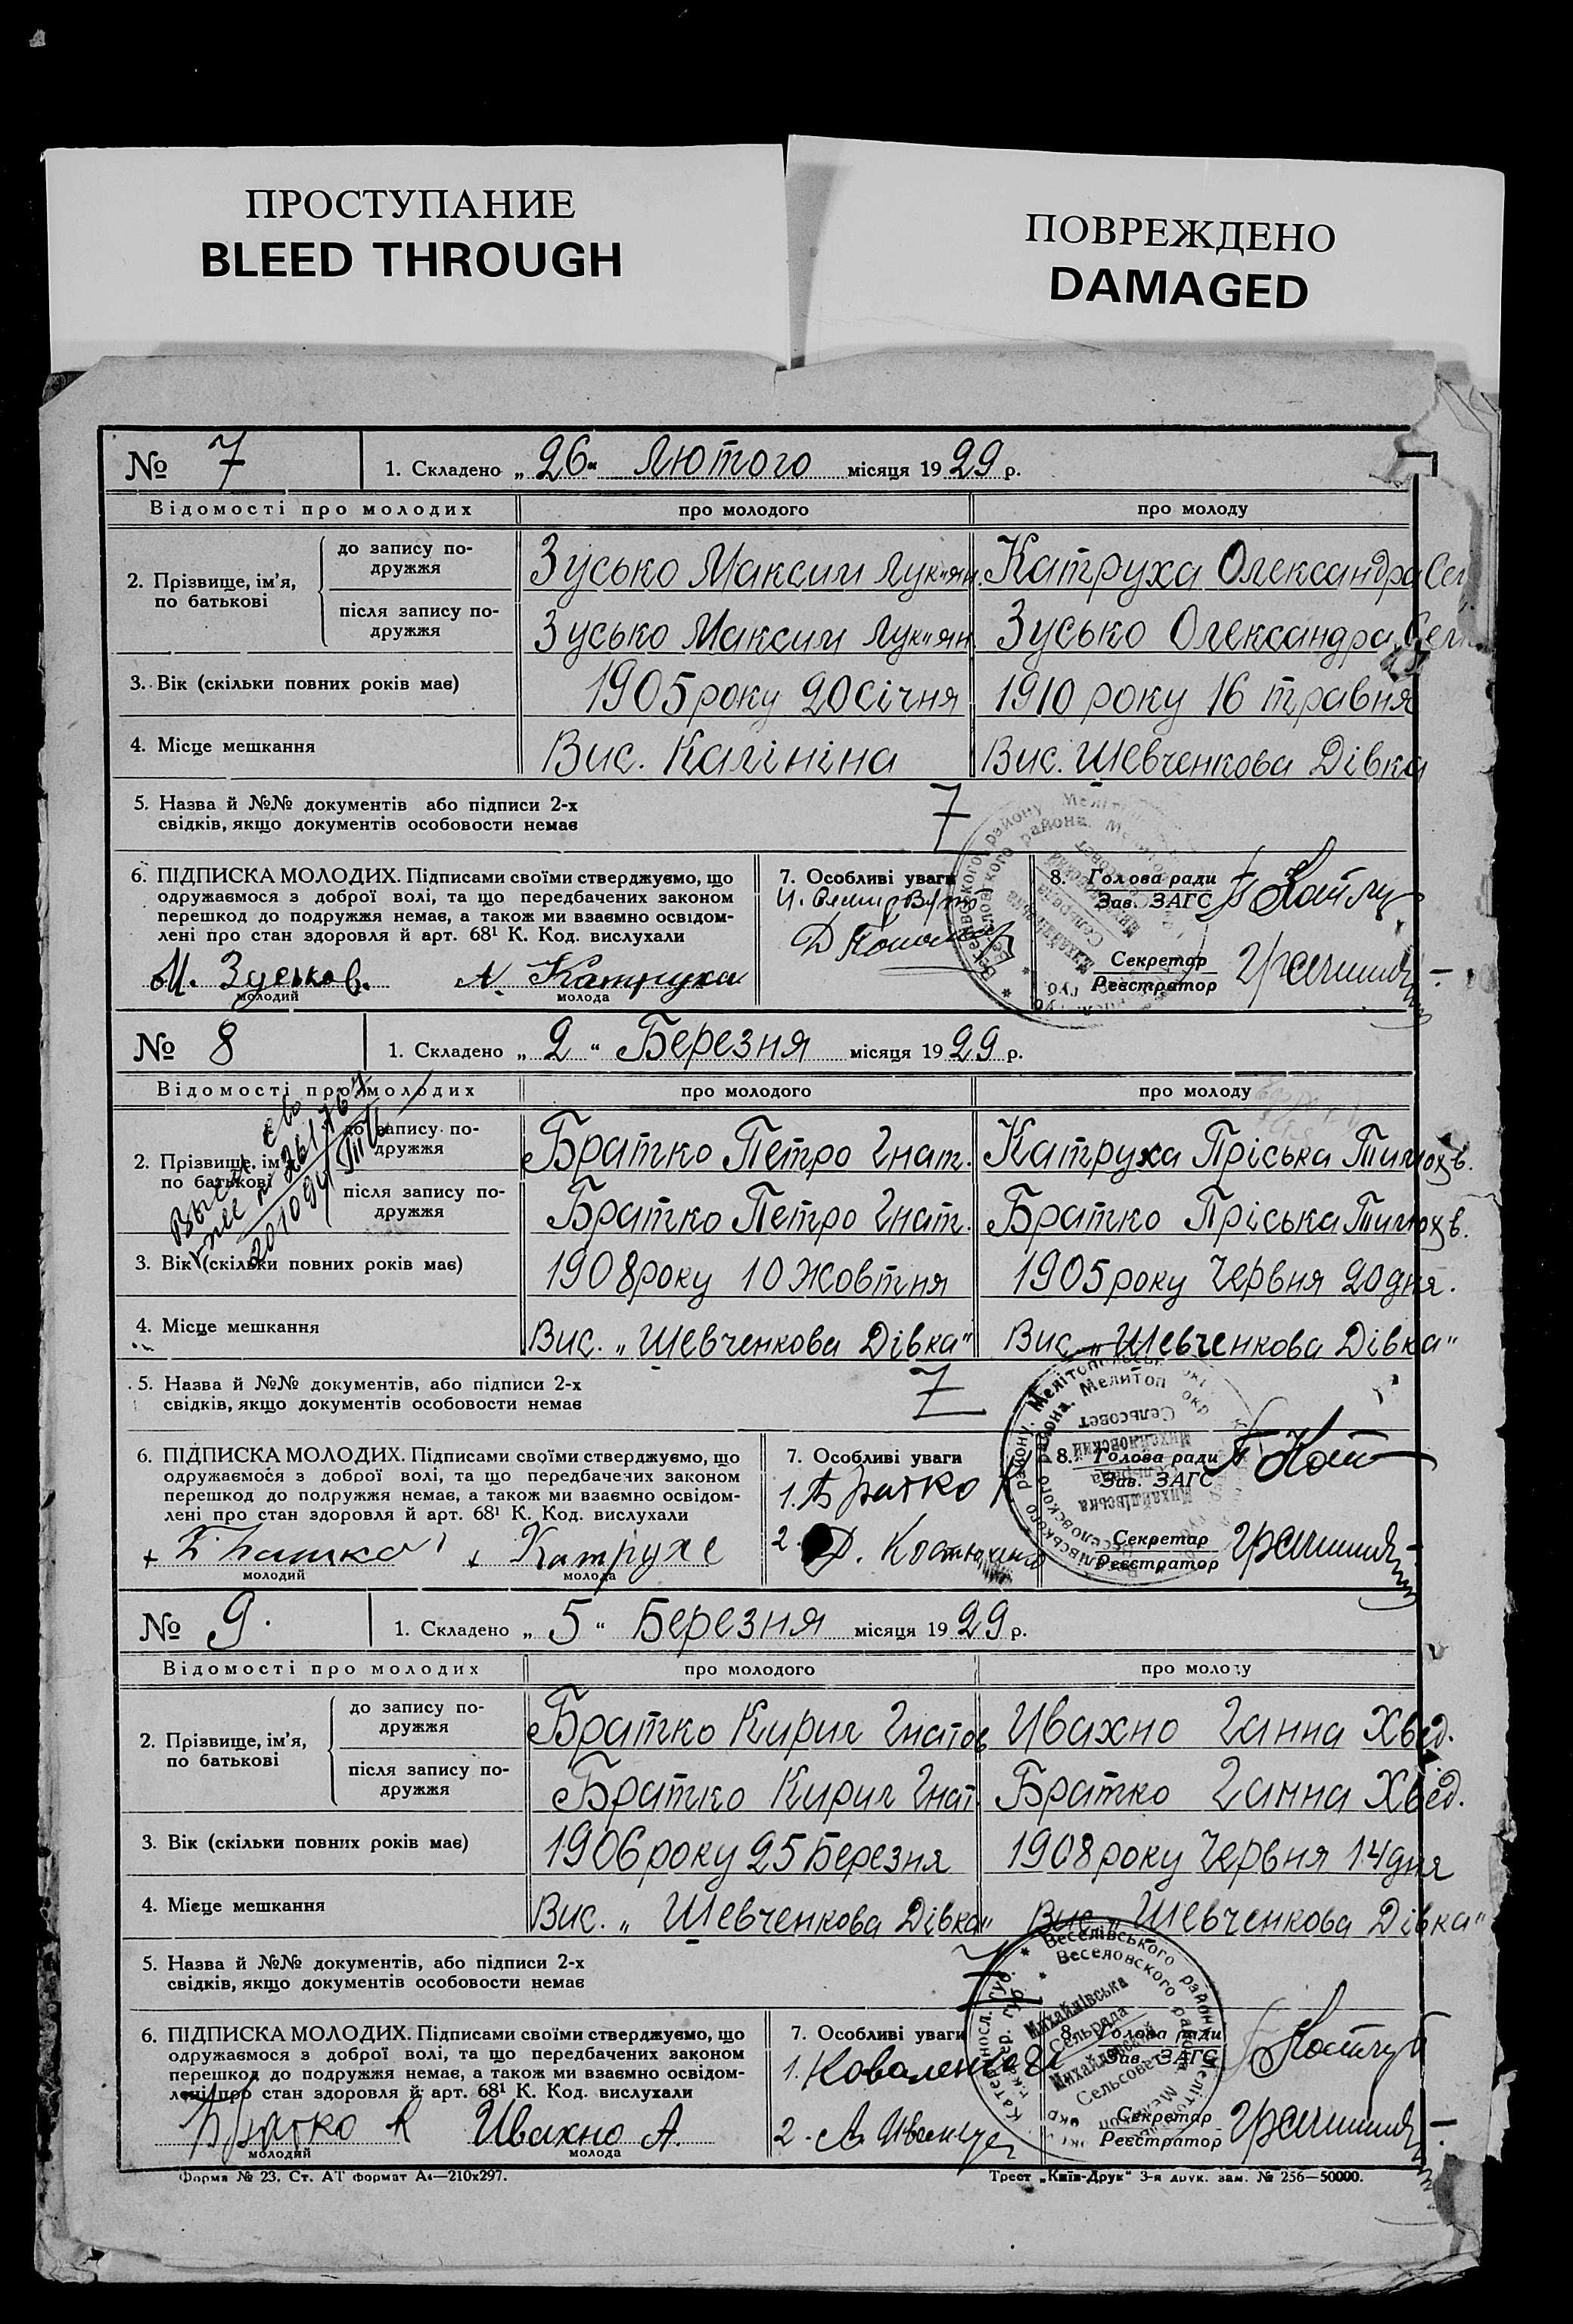 ПРОСТУПАНИЕ
BLEED THROUGH
ПОВРЕЖДЕНО
DAMAGED
№ 7 1. Складено „ 26 “ Лютого місяця 1929 р.
Відомості про молодих про молодого про молоду
2. Прізвище, ім’я, по батькові
до запису подружжя Зусько Максим Лук"ян. Катруха Олександра Сем
після запису подружжя Зусько Максим Лук"ян. Зусько Олександра Сем.
3. Вік (скільки повних років має) 1905 року 20 січня 1910 року 16 травня
4. Місце мешкання Вис. Калініна Вис. Шевченкова Дівка
5. Назва й №№ документів або підписи 2-х
свідків, якщо документів особовости немає 7
6. ПІДПИСКА МОЛОДИХ. Підписами своїми стверджуємо, що
одружаємося з доброї волі, та що передбачених законом
перешкод до подружжя немає, а також ми взаємно освідом-
лені про стан здоровля й арт. 68¹ К. Код. вислухали
М. Зуськов. А. Катруха
молодий молода
7. Особливі уваги
8. Голова ради
Зав. ЗАГС
Секретар
Реєстратор
№ 8 1. Складено „ 2 “ Березня місяця 1929 р.
Відомості про молодих про молодого про молоду
2. Прізвище, ім’я, по батькові
до запису подружжя Братко Петро Гнат. Катруха Пріська Тимохв.
після запису подружжя Братко Петро Гнат. Братко Пріська Тимохв.
3. Вік (скільки повних років має) 1908 року 10 Жовтня 1905 року Червня 20 дня.
4. Місце мешкання Вис. „Шевченкова Дівка“ Вис. „Шевченкова Дівка“
5. Назва й №№ документів, або підписи 2-х
свідків, якщо документів особовости немає 7
6. ПІДПИСКА МОЛОДИХ. Підписами своїми стверджуємо, що
одружаємося з доброї волі, та що передбачених законом
перешкод до подружжя немає, а також ми взаємно освідом-
лені про стан здоровля й арт. 68¹ К. Код. вислухали
молодий молода
7. Особливі уваги
1. Братко К
2. Д.
8. Голова ради
Зав. ЗАГС
Секретар
Реєстратор
№ 9. 1. Складено „ 5 “ Березня місяця 1929 р.
Відомості про молодих про молодого про молоду
2. Прізвище, ім’я, по батькові
до запису подружжя Братко Кирил Гнатов Ивахно Ганна Хвед.
після запису подружжя Братко Кирил Гнат. Братко Ганна Хвед.
3. Вік (скільки повних років має) 1906 року 25 Березня 1908 року Червня 14 дня
4. Місце мешкання Вис. „Шевченкова Дівка“ Вис. „Шевченкова Дівка“
5. Назва й №№ документів, або підписи 2-х
свідків, якщо документів особовости немає 7
6. ПІДПИСКА МОЛОДИХ. Підписами своїми стверджуємо, що
одружаємося з доброї волі, та що передбачених законом
перешкод до подружжя немає, а також ми взаємно освідом-
лені про стан здоровля й арт. 68¹ К. Код. вислухали
Братко К Ивахно А.
молодий молода
7. Особливі уваги
1. Коваленко
2. А.
8. Голова ради
Зав. ЗАГС
Секретар
Реєстратор
Михайлівська
Сельрада
Михайловский
Сельсовет
Форма № 23. Ст. АТ формат А4—210х297. Трест „Київ-Друк“ 3-я друк. зам. № 256—50000.